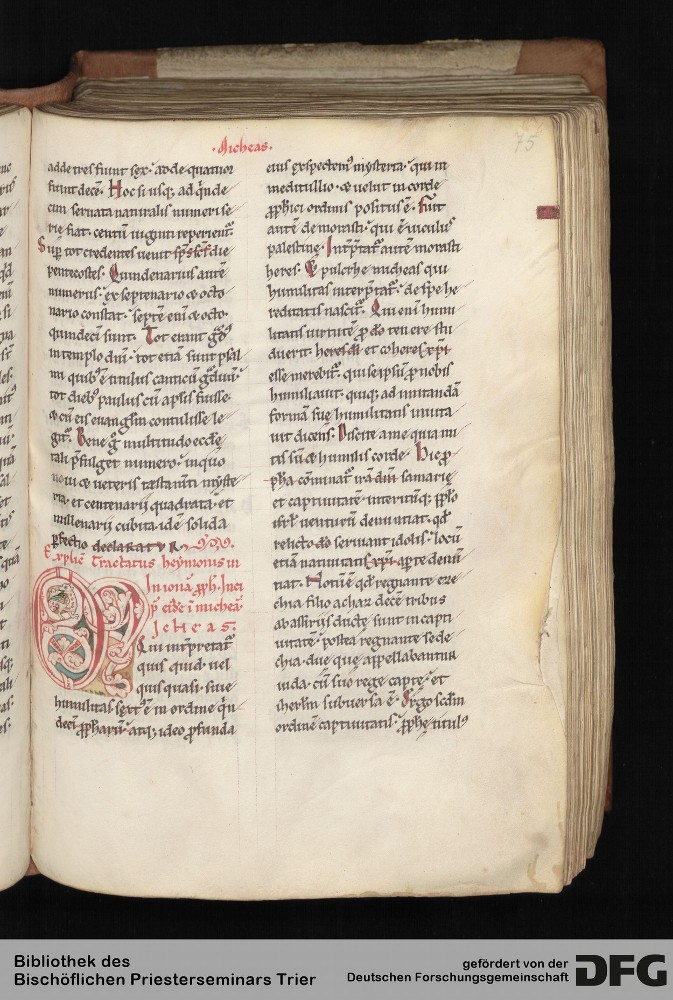 ·Micheas·
75
adde tres fiunt sex· adde quatuor
fiunt decē· Hoc si usq; ad q̄nde
cim seruata naturalis numeri se
rie fiat· centū uiginti reperient᷑·
Sup̄ tot credentes uenit sp̄s sc̄s die
pentecostes· Quindenarius autē
numerus· ex septenario & octo
nario constat· septē eni᷑ & octo·
quindeci᷑ sunt· Tot erant gͣdꝰ
in templo dn̄i· tot etiā sunt psal
mi quibꝰ ē titulus canticū gͣduū·
tot diebꝰ paulus cū apl̄is fuisse
& cū eis euangl̄ium contulisse le
git᷑· Bene gͦ multitudo eccl̄ę
tali p̄fulget numero· in quo
noui & veteris testam̄ti myste
ria· et centenarij quadrata· et
millenarij cubita· idē solida
ꝑfectio declaratur·
Explic̄ Tractatus heymonis in
In ionā ꝓph· Inci
p̄ eiꝰdē i᷑ micheā
Icheas·
Qui int̄pretat᷑
quis quid· uel
quis quasi· siue
humilitas· sextꝰ ē in ordine q̄n
deci᷑ ꝓph̄arū· atq; ideo ꝓfunda
eius exspectem᷑ mysteria· qui in
meditullio· & uelut in corde
ꝓph̄ici ordinis positus ē· Fuit
autē de morasti· qui ē uiculus
palestinę· Int̄p̄tat᷑ autē morasti
heres· Et pulchre micheas qui
humilitas interp̄tat᷑· de spe he
reditatis nascit᷑· Qui eni᷑ humi
litatis uirtutē ꝓ dō tenere stu
duerit· heres dī et coheres xp̄i
esse merebit᷑· qui se ipsū ꝓ nobis
humiliauit· quiq; ad imitandā
formā suę humilitatis inuita
uit dicens· Discite a me quia mi
tis sū & humilis corde· Hic ꝓ
ph̄a cōminat᷑ irā dn̄i samarię
et captiuitatē· interimq; pp̄lo
isrl̄ uenturū denuntiat· qd̄
relicto dō seruiant idolis· locū
etiā natiuitatis xp̄i aperte denū
tiat· Notū ē qd̄ regnante eze
chia filio achaz decē tribus
ab assirijs ductę sunt in capti
uitatē· postea regnante sede
chia· duę quę appellabantur
iuda· cū suo rege captę· et
iherl̄m subuersa ē· Ergo scd̄m
ordinē captiuitatis· ꝓph̄ę titulꝰ
Bibliothek des
Bischöflichen Priesterseminars Trier
gefördert von der
Deutschen Forschungsgemeinschaft
DFG